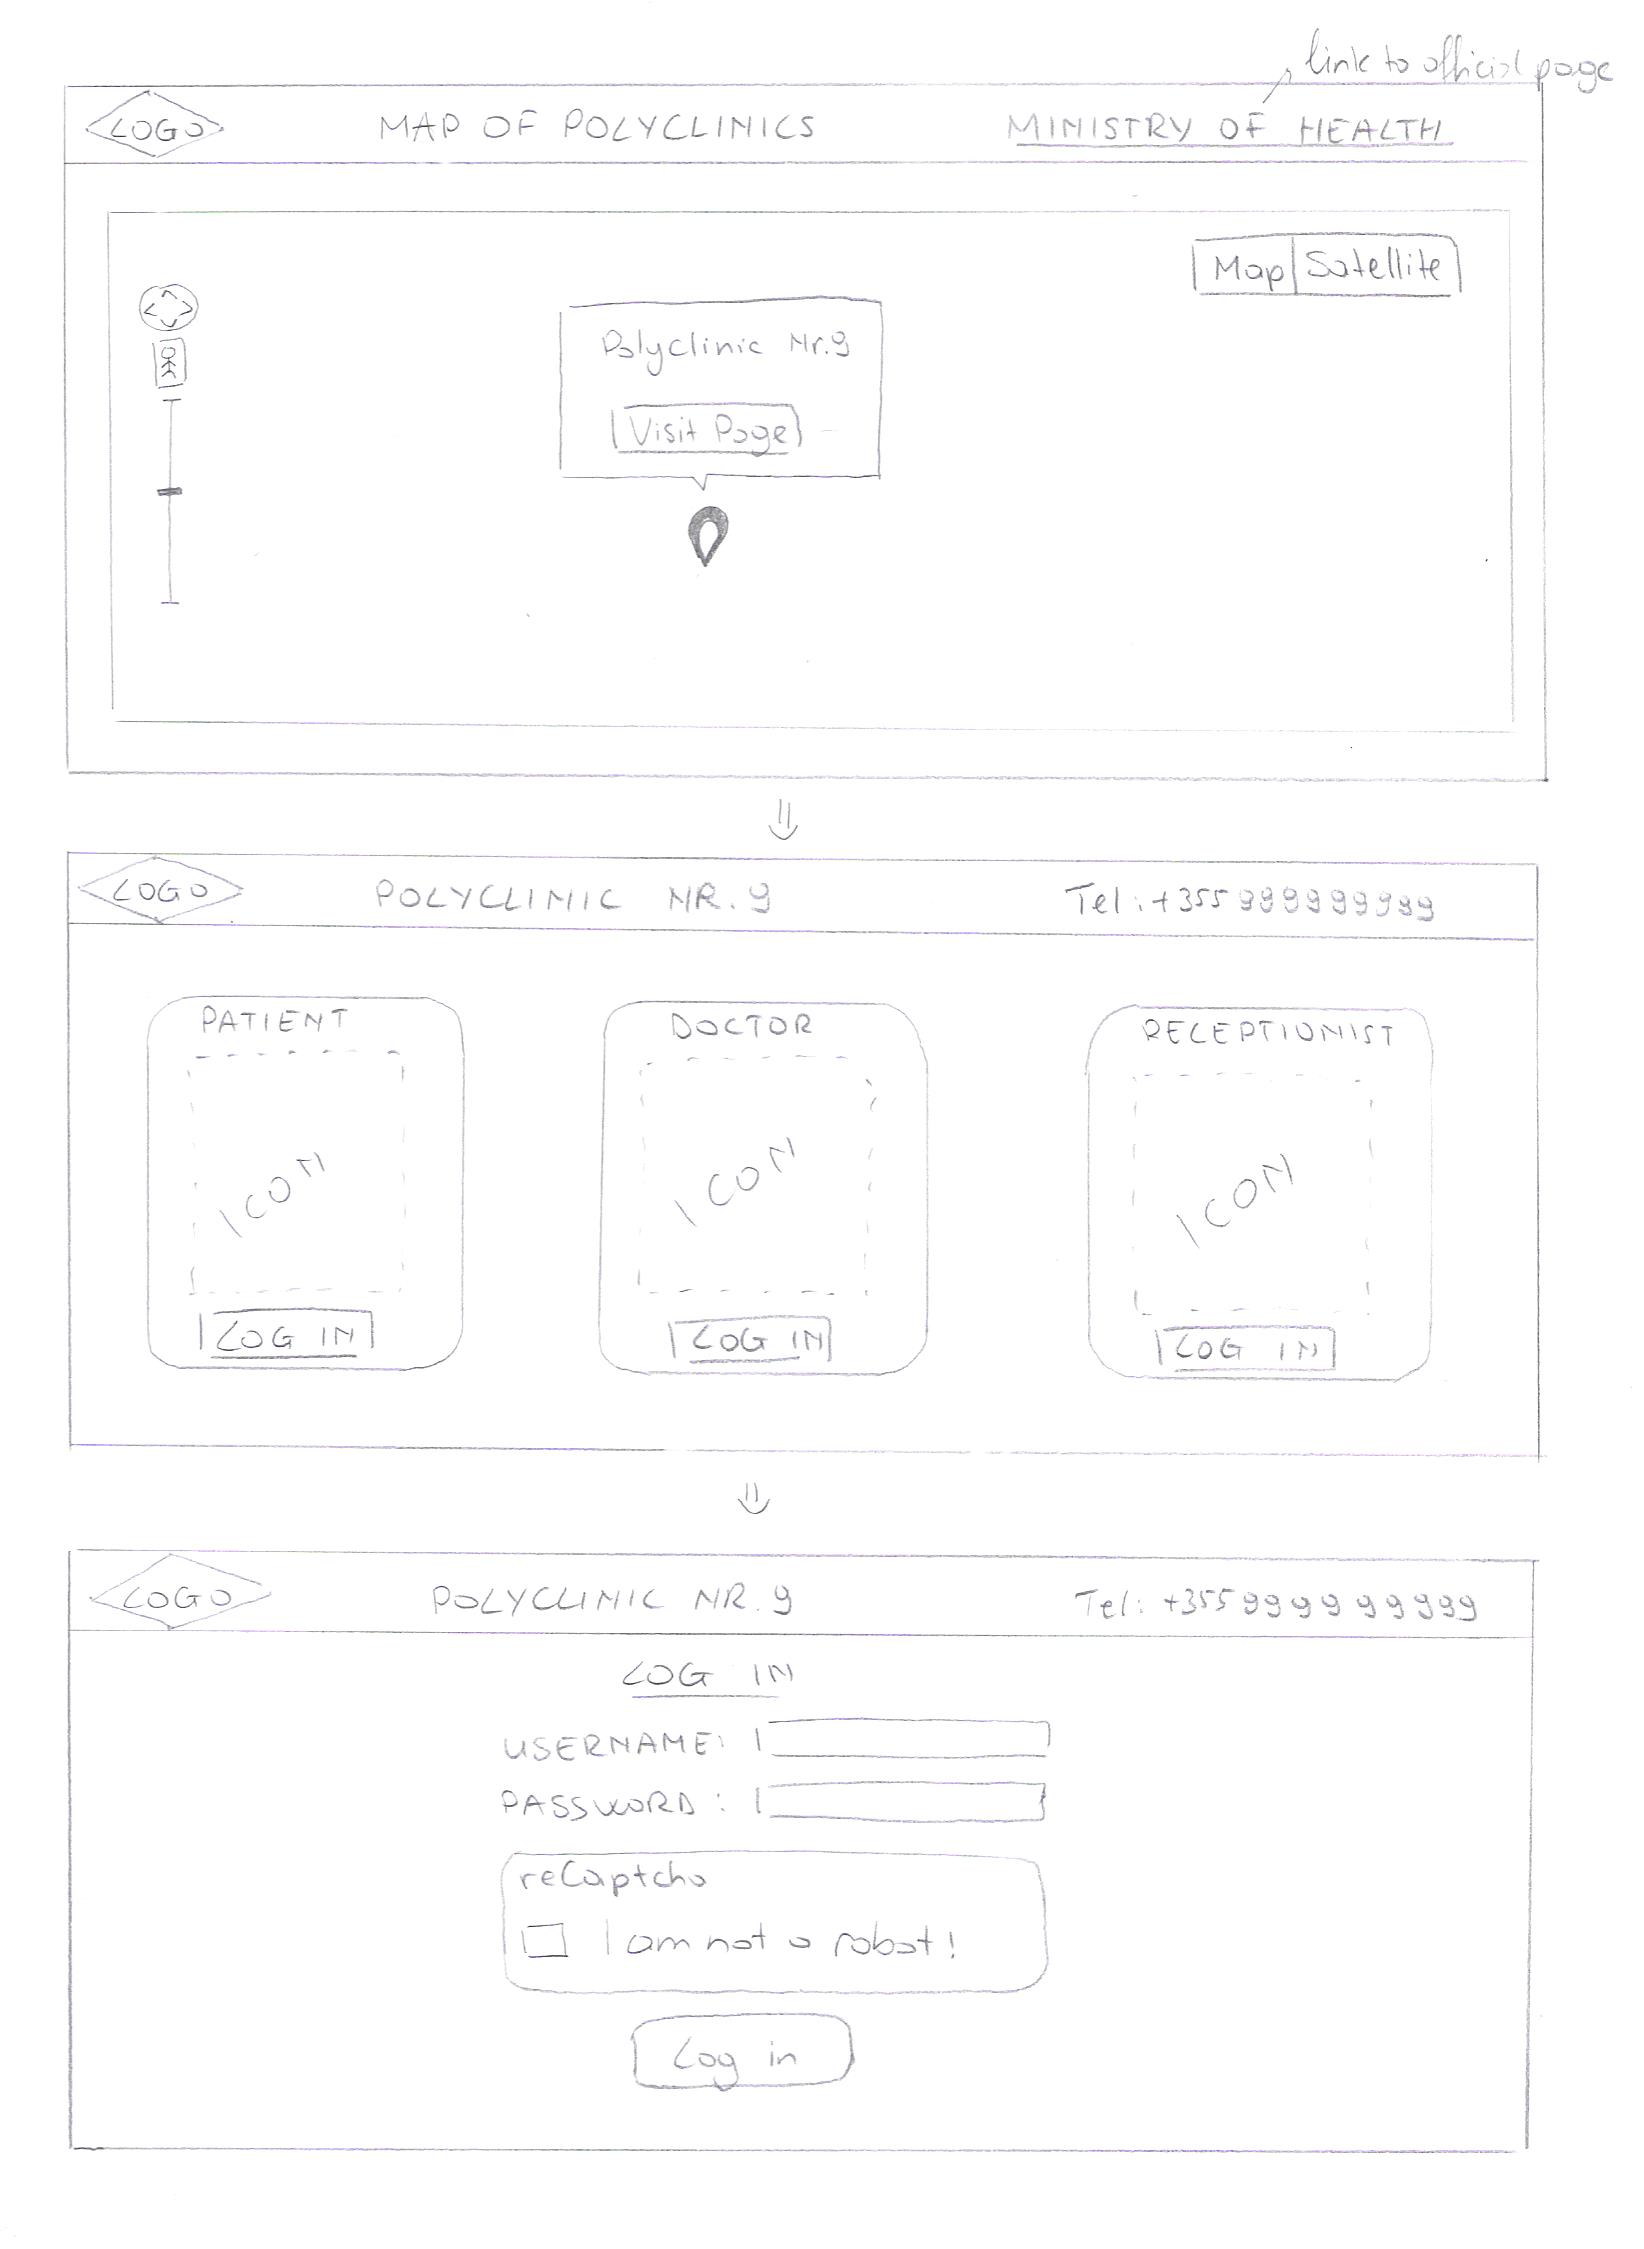 link to official page
LOGO
MAP OF POLYCLINICS
MINISTRY OF HEALTH
Map
Satellite
Polyclinic Nr.9
Visit Page
LOGO
POLYCLINIC NR.9
Tel:+355 999999999
PATIENT
DOCTOR
RECEPTIONIST
ICON
ICON
ICON
LOG IN
LOG IN
LOG IN
LOGO
POLYCLINIC NR.9
Tel: +355999999999
LOG IN
USERNAME:
PASSWORD:
reCaptcha
I am not a robot!
Log in